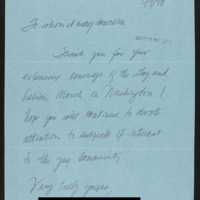 To whom it may concern
Thank you for your
extensive coverage of the Gay and
Lesbian March on Washington. I
hope you will continue to devote
attention to subjects of interest
to the gay community.
Very truly yours,